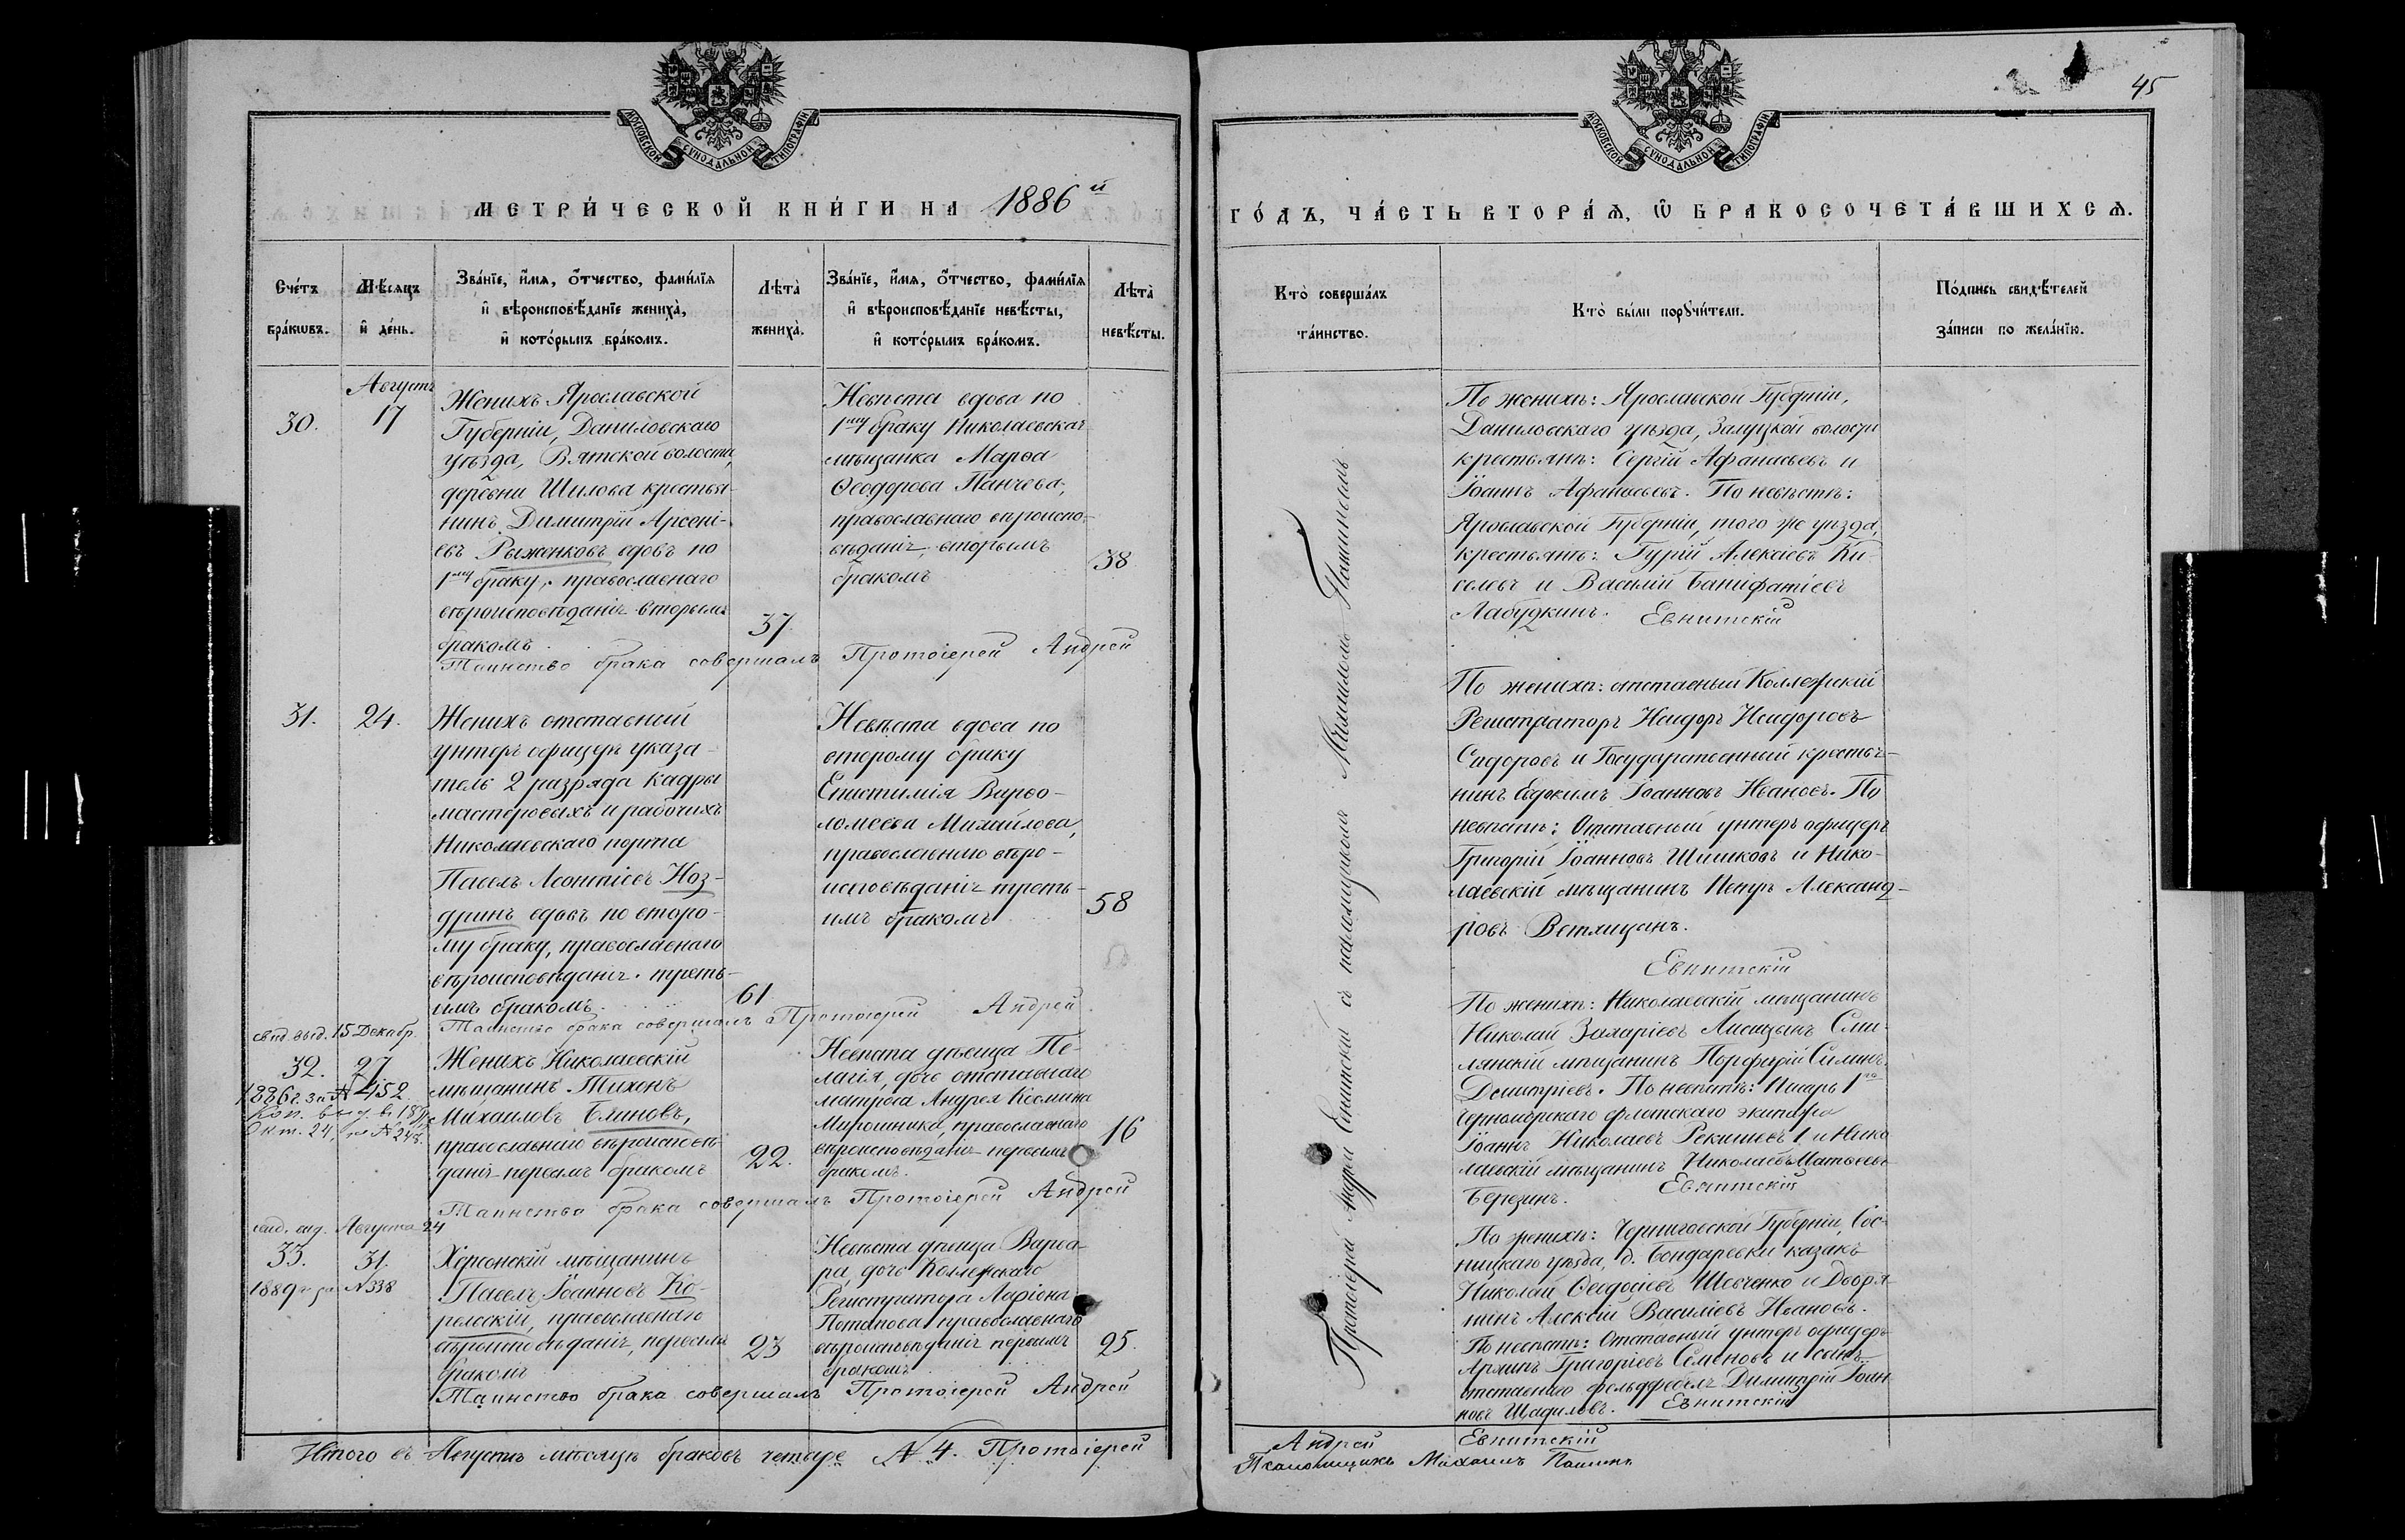 МОСКОВСКОЙ СѴНОДАЛЬНОЙ ТИПОГРАФІИ
МЕТРИ́ЧЕСКОЙ КНИ́ГИ НА 1886й
Сче́тъ бра́кѡвъ.
Мѣ́сяцъ и҆ де́нь.
Зва́нїе, и҆́мѧ, ѻ҆́тчество, фами́лїѧ
и҆ вѣроисповѣ́данїе жениха̀,
и҆ кото́рымъ бра́комъ.
Лѣта̀ жениха̀.
Зва́нїе, и҆́мѧ, ѻ҆́тчество, фами́лїѧ
и҆ вѣроисповѣ́данїе невѣ́сты,
и҆ кото́рымъ бра́комъ.
Лѣта̀ невѣ́сты.
30.
Августъ
17
Женихъ Ярославской
Губерніи, Даниловскаго
уѣзда, Вятской волости,
деревни Шилова крестья-
нинъ Димитрій Арсені-
евъ Рыженковъ вдовъ по
1му браку, православнаго
вѣроисповѣданія вторымъ
бракомъ
37
Невѣста вдова по
1му браку Николаевская
мѣщанка Марѳа
Ѳеодорова Панчева,
православнаго вѣроиспо-
вѣданія, вторымъ
бракомъ
38
Таинство брака совершалъ Протоіерей Андрей
31.
24.
Женихъ отставный
унтеръ офицеръ указа-
тель 2 разряда кадры
мастеровыхъ и рабочихъ
Николаевскаго порта
Павелъ Леонтіевъ Ноз-
дринъ вдовъ по второ-
му браку, православнаго
вѣроисповѣданія. треть-
имъ бракомъ.
61
Невѣста вдова по
второму браку
Епистимія Варѳо-
ломеева Михайлова,
православнаго вѣро-
исповѣданія треть-
имъ бракомъ
58
Таинство брака совершалъ Протоіерей Андрей
свид. выд. 15 Декабр.
32.
27
1886 г. за № 452
Окт. 24, № 248.
Женихъ Николаевскій
мѣщанинъ Тихонъ
Михаиловъ Блиновъ,
православнаго вѣроисповѣ-
данія первымъ бракомъ
22.
Невѣста дѣвица Пе-
лагія, дочь отставнаго
матроса Андрея Космина
Мирошника, православнаго
вѣроисповѣданія первымъ
бракомъ.
16
Таинство брака совершалъ Протоіерей Андрей
свид. выд. Августа 24
33.
31.
1889 г. за № 338
Херсонскій мѣщанинъ
Павелъ Іоанновъ Ко-
ревскій, православнаго
вѣроисповѣданія, первымъ
бракомъ
23
Невѣста дѣвица Варва-
ра, дочь Коллежскаго
Регистратора Ларіона
Потапова православнаго
вѣроисповѣданія первымъ
бракомъ
25.
Таинство брака совершалъ Протоіерей Андрей
Итого въ Августѣ мѣсяцѣ браковъ четыре № 4. Протоіерей
45
МОСКОВСКОЙ СѴНОДАЛЬНОЙ ТИПОГРАФІИ
ГО́ДЪ, ЧА́СТЬ ВТОРА́Ѧ, Ѽ БРАКОСОЧЕТА́ВШИХСѦ.
Кто̀ соверша́лъ та́инство.
Кто̀ бы́ли порꙋчи́тели.
По́дпись свидѣ́телей
за́писи по жела́нїю.
Протоіерей Андрей Евнитскій съ псаломщикомъ Михаиломъ
По женихѣ: Ярославской Губерніи,
Даниловскаго уѣзда, Залуцкой волости
крестьянѣ: Сергій Афанасьевъ и
Іоаннъ Афанасьевъ. По невѣстѣ:
Ярославской Губерніи, того же уѣзда,
крестьянѣ: Гурій Алексіевъ Ки-
селевъ и Василій Ванифатіевъ
Лабудкинъ. Евнитскій
По женихѣ: отставный Коллежскій
Регистраторъ Исидоръ Исидоровъ
Сидоровъ и Государственный крестья-
нинъ Евдокимъ Іоанновъ Ивановъ. По
невѣстѣ: Отставный унтеръ офицеръ
Григорій Іоанновъ Шишковъ и Нико-
лаевскій мѣщанинъ Петръ Александ-
ровъ Ветлицынъ.
Евнитскій
По женихѣ: Николаевскій мѣщанинъ
Николай Захаріевъ Лисицынъ Сми-
лянскій мѣщанинъ Порфирій
Димитріевъ. По невѣстѣ: Писарь 1го
Черноморскаго флотскаго экипажа
Іоаннъ Николаевъ Рекишевъ 1 и Нико-
лаевскій мѣщанинъ Николаевъ Матвеевъ
Березинъ. Евнитскій
По женихѣ: Черниговской Губерніи, Сос-
ницкаго уѣзда, д. Бондаревки казакъ
Николай Ѳеодосіевъ Шевченко и Дворя-
нинъ Алексій Василіевъ Ивановъ.
По невѣстѣ: Отставный унтеръ офицеръ
Григоріевъ Семеновъ и сынъ
отставнаго фельдфебеля Димитрій Іоан-
новъ Шадиловъ. Евнитскій
Андрей Евнитскій
Псаломщикъ Михаилъ